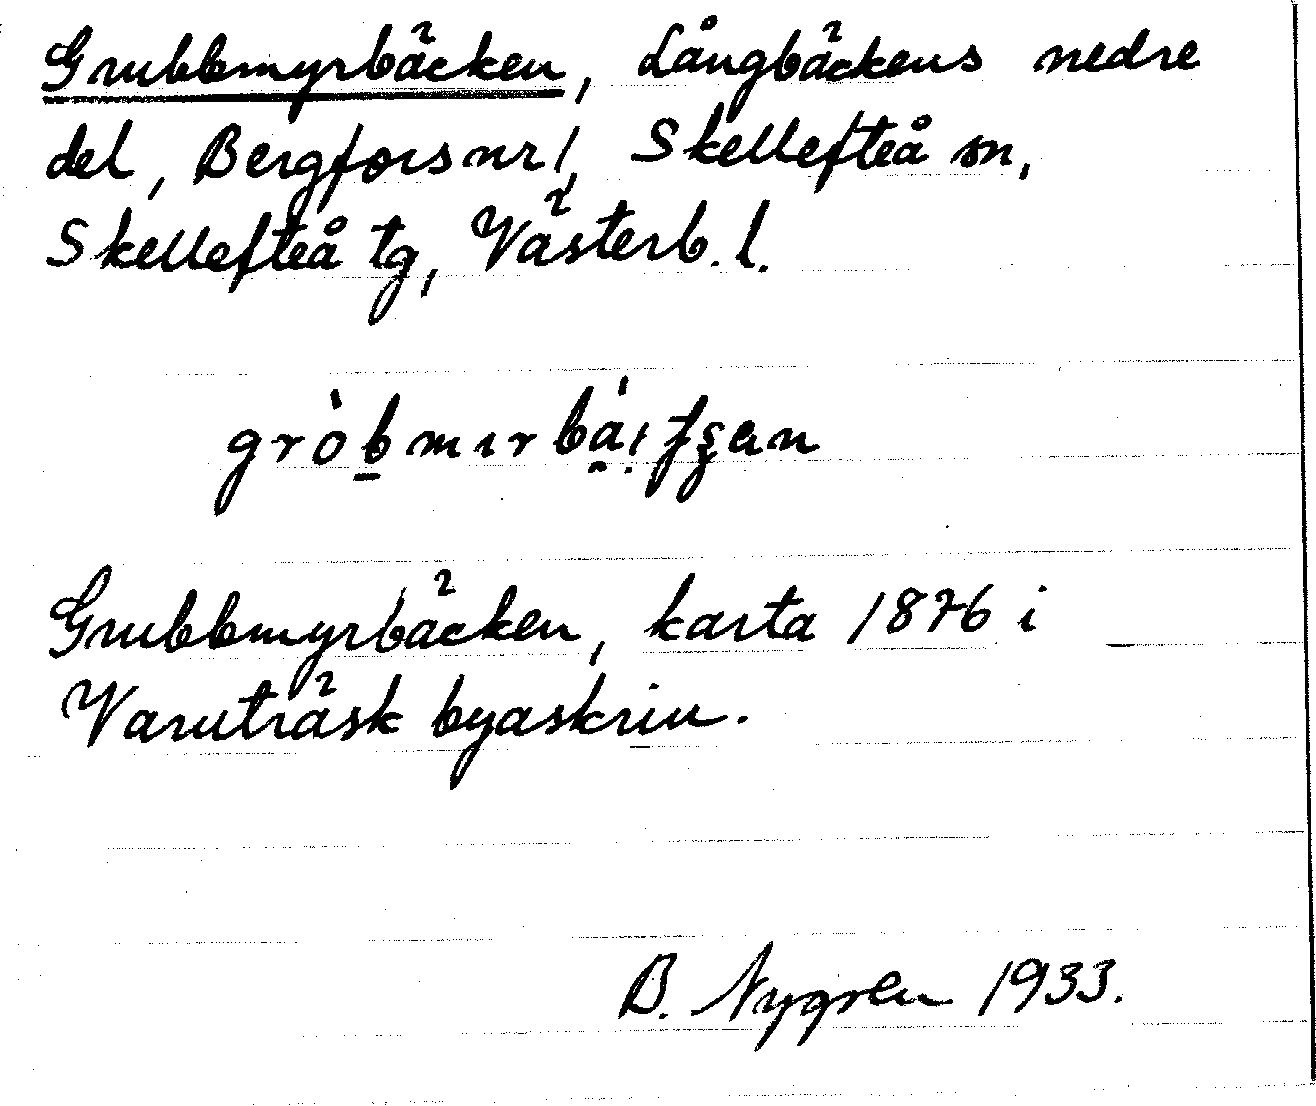 Grubbmyrbäcken, Långbäckens nedre
del, Bergfors nr 1, Skellefteå sn,
Skellefteå tg, Västerb. l.
Grubbmyrbäcken, karta 1876 i
Varuträsk byaskrin.
B. Nygren 1933.